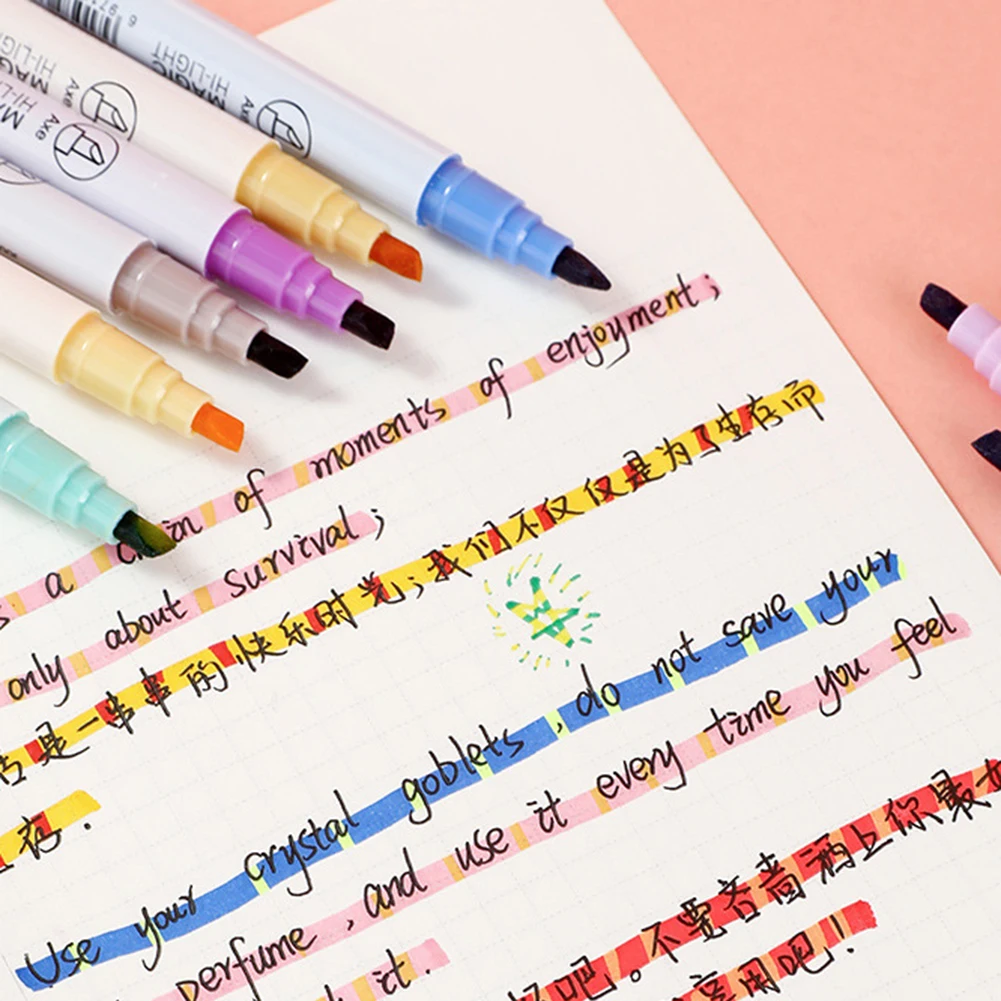 MAGIC
HI-LIGHT
Axe
MAGIC
HI-LIGHT
Axe
Axe
s a chain of moments of enjoyment;
only about survival;
活是一串串的快乐时光;我们不仅仅是为了生存而
存.
Use your crystal goblets, do not save your
perfume, and use it every time you feel
it.
吧。不要吝啬洒上你最
享用吧!